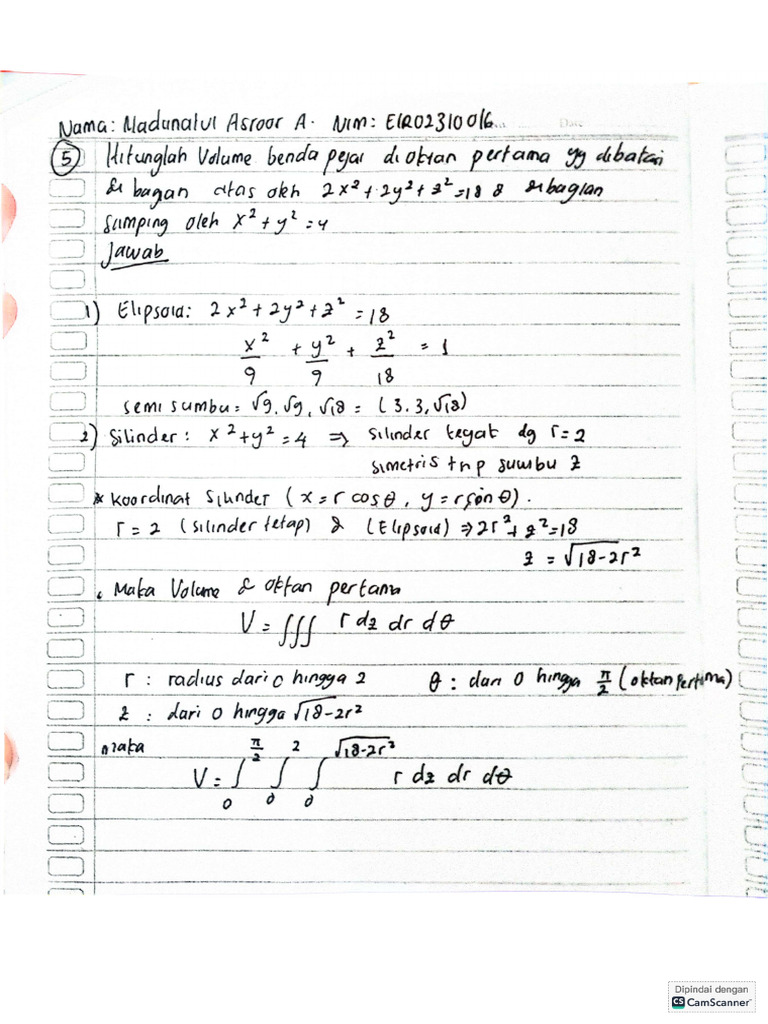 Nama: Madunatul Asroor A. NIM: E1R02310016
Date
5 Hitunglah Volume benda pejal di oktan pertama yg dibatasi
di bagian atas oleh 2x² + 2y² + z² = 18 & dibagian
samping oleh x² + y² = 4
Jawab
1) Elipsoid: 2x² + 2y² + z² = 18
x²/9 + y²/9 + z²/18 = 1
semi sumbu = √9, √9, √18 = (3.3,√18)
2) Silinder: x² + y² = 4 ⇒ silinder tegak dg r = 2
simetris thp sumbu z
* Koordinat Silinder (x = r cosθ, y = r sinθ).
r = 2 (silinder tetap) & (Elipsoid) ⇒ 2r² + z² = 18
z = √18-2r²
• Maka Volume di oktan pertama
V = ∭ r dz dr dθ
r : radius dari 0 hingga 2 θ : dari 0 hingga π/2 (oktan pertama)
z : dari 0 hingga √18-2r²
maka
V = ∫₀^(π/2) ∫₀^2 ∫₀^(√18-2r²) r dz dr dθ
Dipindai dengan
CS CamScanner